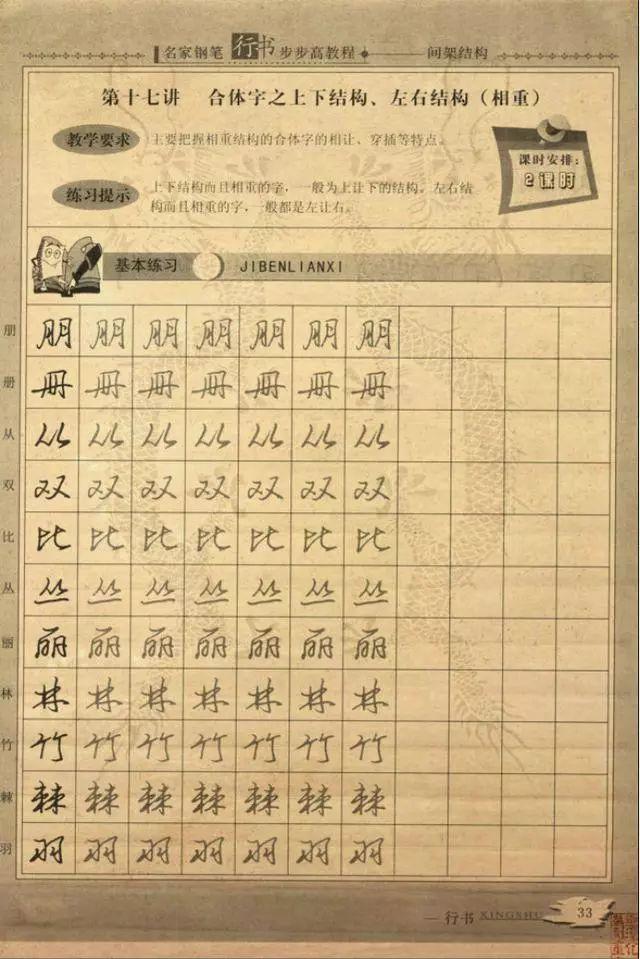 名家钢笔行书步步高教程 间架结构
第十七讲 合体字之上下结构、左右结构（相重）
教学要求 主要把握相重结构的合体字的相让、穿插等特点。
课时安排：
2课时
练习提示 上下结构而且相重的字，一般为上让下的结构。左右结
构而且相重的字，一般都是左让右。
基本练习 JIBENLIANXI
朋 朋 朋 朋 朋 朋 朋 朋
册 册 册 册 册 册 册 册
从 从 从 从 从 从 从 从
双 双 双 双 双 双 双 双
比 比 比 比 比 比 比 比
丛 丛 丛 丛 丛 丛 丛 丛
丽 丽 丽 丽 丽 丽 丽 丽
林 林 林 林 林 林 林 林
竹 竹 竹 竹 竹 竹 竹 竹
棘 棘 棘 棘 棘 棘 棘 棘
羽 羽 羽 羽 羽 羽 羽 羽
行书 XINGSHU 33